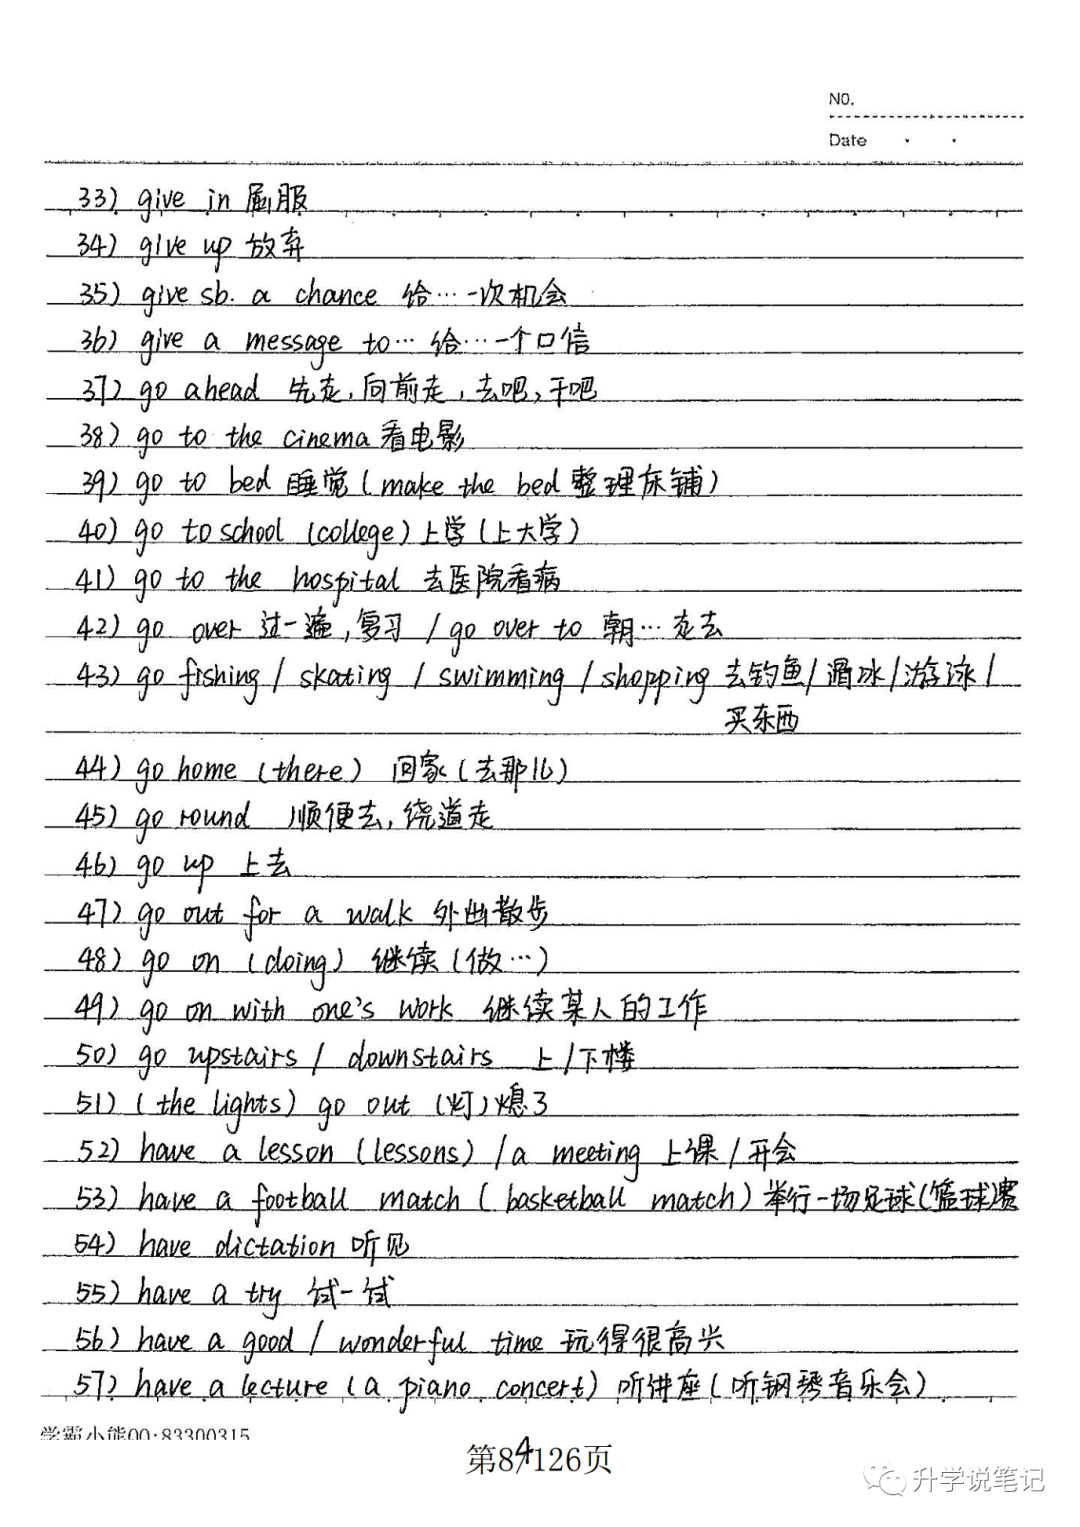 NO.
Date
33) give in 屈服
34) give up 放弃
35) give sb. a chance 给…一次机会
36) give a message to… 给…一个口信
37) go ahead 先走,向前走,去吧,干吧
38) go to the cinema 看电影
39) go to bed 睡觉(make the bed 整理床铺)
40) go to school (college) 上学(上大学)
41) go to the hospital 去医院看病
42) go over 过一遍,复习 / go over to 朝…走去
43) go fishing / skating / swimming / shopping 去钓鱼/滑冰/游泳/
买东西
44) go home (there) 回家(去那儿)
45) go round 顺便去,绕道走
46) go up 上去
47) go out for a walk 外出散步
48) go on (doing) 继续(做…)
49) go on with one's work 继续某人的工作
50) go upstairs / downstairs 上/下楼
51) (the lights) go out (灯)熄了
52) have a lesson (lessons) / a meeting 上课/开会
53) have a football match (basketball match) 举行一场足球(篮球)赛
54) have dictation 听见
55) have a try 试一试
56) have a good / wonderful time 玩得很高兴
57) have a lecture (a piano concert) 听讲座(听钢琴音乐会)
学霸小熊QQ:83300315
4
第8/126页
升学说笔记